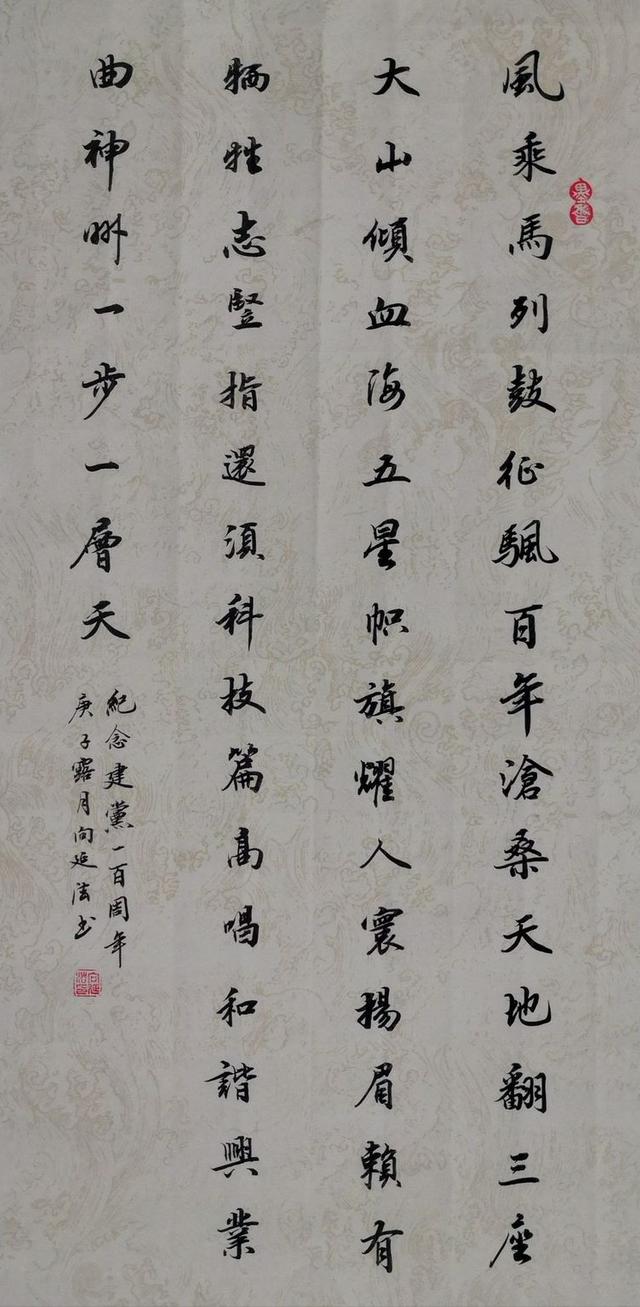 風乘馬列鼓征颿百年滄桑天地翻三座
大山傾血海五星帜旗耀人寰揚眉賴有
牺牲志豎指還須科技篇高唱和諧興業
曲神州一步一層天
紀念建黨一百周年
庚子露月向延法书